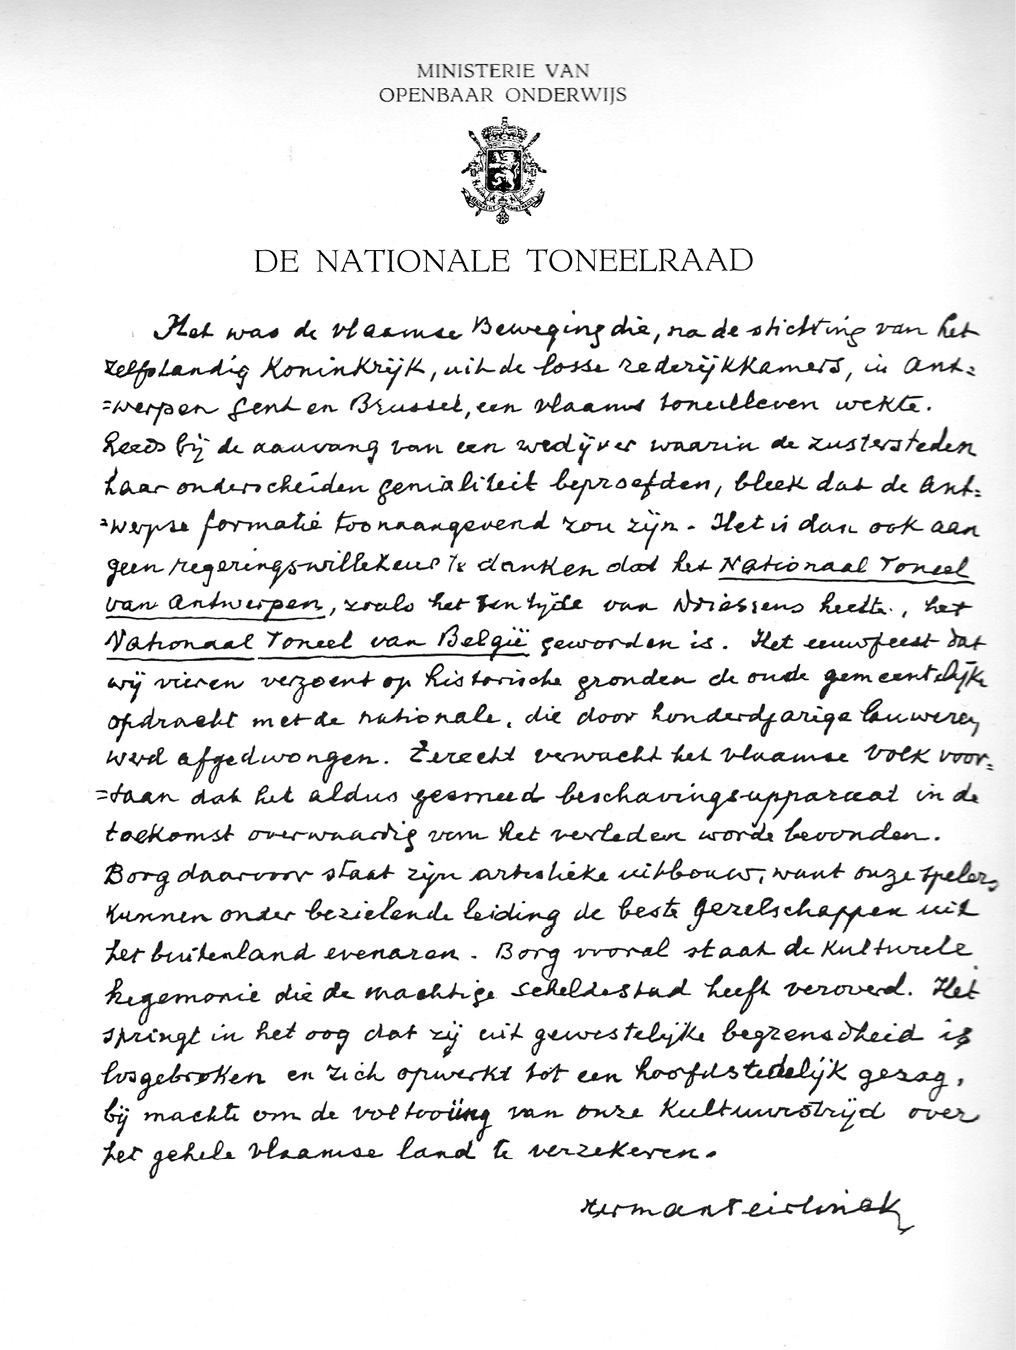 MINISTERIE VAN
OPENBAAR ONDERWIJS
DE NATIONALE TONEELRAAD
Het was de vlaamse Beweging die, na de stichting van het
zelfstandig Koninkrijk, uit de losse rederijkkamers, in Ant=
=werpen Gent en Brussel, een vlaams toneelleven wekte.
Reeds bij de aanvang van een wedijver waarin de zustersteden
haar onderscheiden genialiteit beproefden, bleek dat de Ant=
=werpse formatie toonaangevend zou zijn. Het is dan ook aan
geen regeringswillekeur te danken dat het Nationaal Toneel
van Antwerpen, zoals het ten tijde van Driessens heette, het
Nationaal Toneel van België geworden is. Het eeuwfeest dat
wij vieren verzoent op historische gronden de oude gemeentelijke
opdracht met de nationale, die door honderdjarige lauweren
werd afgedwongen. Terecht verwacht het vlaamse volk voor=
=taan dat het aldus gesmeed beschavingsapparaat in de
toekomst overwaardig van het verleden worde bevonden.
Borg daarvoor staat zijn artistieke uitbouw, want onze spelers
kunnen onder bezielende leiding de beste gezelschappen uit
het buitenland evenaren. Borg vooral staat de kulturele
hegemonie die de machtige Scheldestad heeft veroverd. Het
springt in het oog dat zij uit gewestelijke begrensdheid is
losgebroken en zich opwerkt tot een hoofdstedelijk gezag,
bij machte om de voltooiing van onze Kultuurstrijd over
het gehele vlaamse land te verzekeren.
Herman Teirlinck